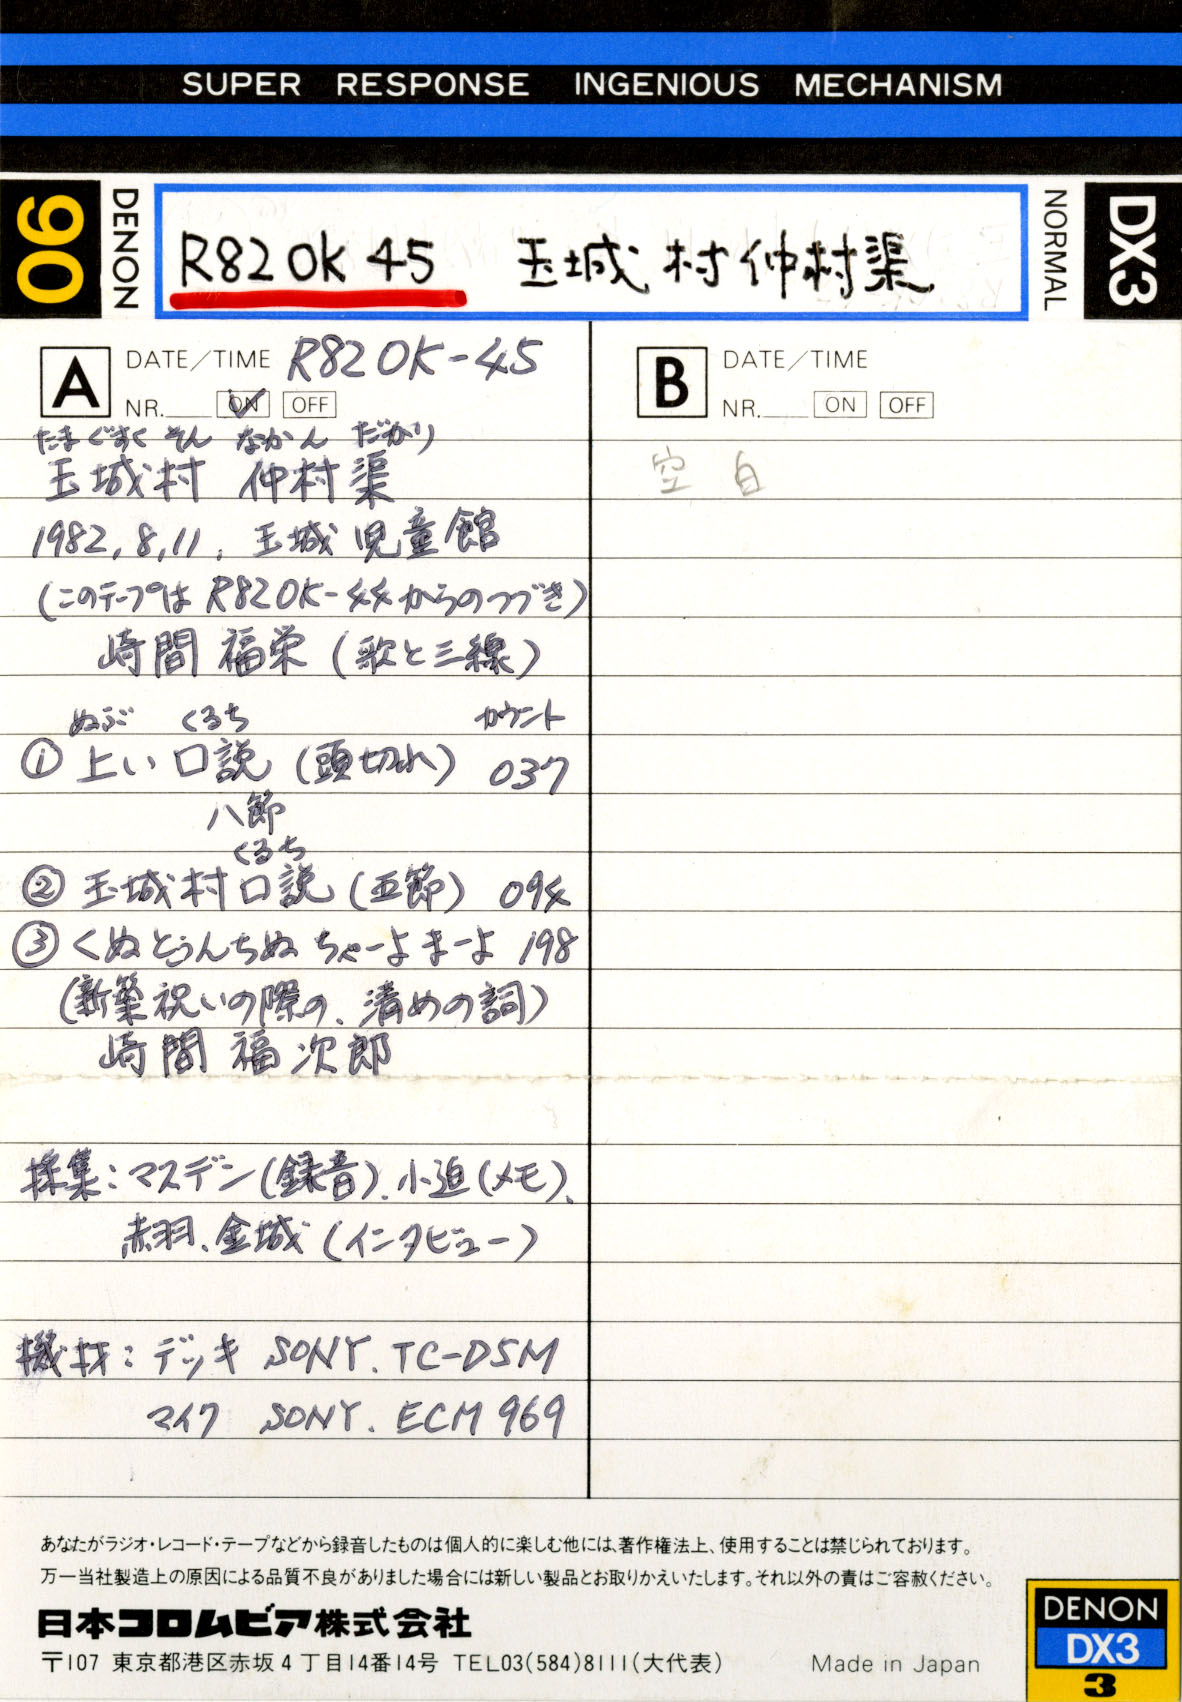 SUPER RESPONSE INGENIOUS MECHANISM
90
DENON
R82 OK 45 玉城村仲村渠
NORMAL
DX3
A DATE/TIME R82 OK-45
NR. ON OFF
たまぐすくそん なかんだかり
玉城村 仲村渠
1982, 8, 11, 玉城児童館
(このテープは R82 OK-44からのつづき)
崎間 福栄 (歌と三線)
ぬぶ くるち カウント
① 上い口説 (頭切れ) 037
八節
くるち
② 玉城村口説 (五節) 094
③ くぬとぅんちぬ ちゃーよまーよ 198
(新築祝いの際の、清めの詞)
崎間 福次郎
採集: マスデン(録音)、小迫(メモ)、
赤羽、金城(インタビュー)
機材: デッキ SONY. TC-D5M
マイク SONY. ECM 969
B DATE/TIME
NR. ON OFF
空白
あなたがラジオ・レコード・テープなどから録音したものは個人的に楽しむ他には、著作権法上、使用することは禁じられております。
万一当社製造上の原因による品質不良がありました場合には新しい製品とお取りかえいたします。それ以外の責はご容赦ください。
日本コロムビア株式会社
〒107 東京都港区赤坂4丁目14番14号 TEL03(584)8111(大代表) Made in Japan
DENON
DX3
3